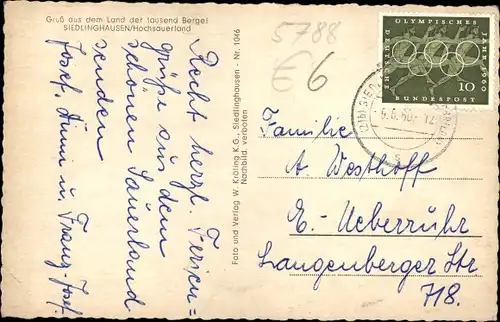 Gruß aus dem Land der tausend Berge!
SIEDLINGHAUSEN/Hochsauerland
Recht herzl. Ferien=
grüße aus dem
schönen Sauerland
senden
Josef, Anni u. Franz-Josef.
Foto und Verlag W. Kräling K.G., Siedlinghausen - Nr. 1046
Nachbild. verboten
5788
6
DEUTSCHES OLYMPISCHES JAHR 1960
10
BUNDESPOST
6.8.60. 12
Familie
A. Westhoff
E.-Ueberruhr
Langenberger Str
718.